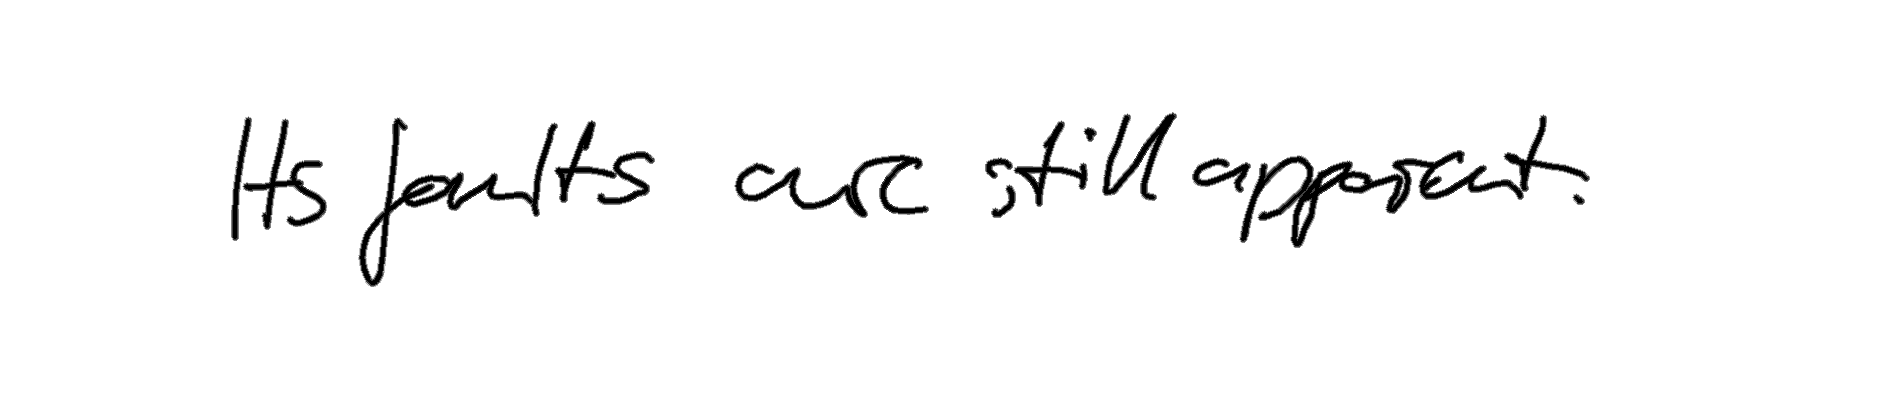 Its faults are still apparent.